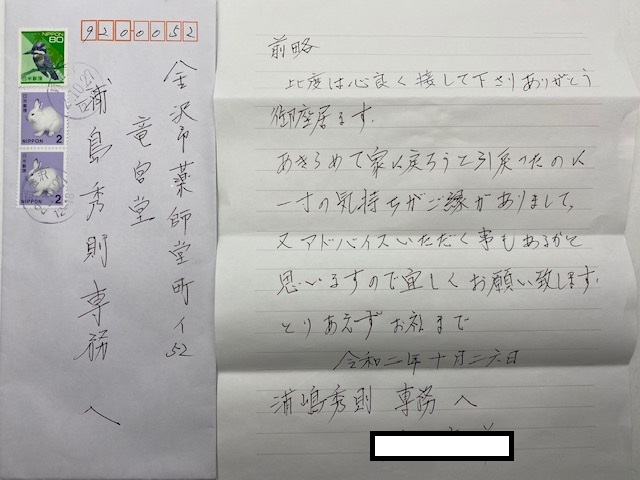 NIPPON
80
日本郵便
NIPPON
2
NIPPON
2
9200052
金沢市薬師堂町イ52
竜宮堂
浦島秀則専務へ
前略
此度は心良く接して下さりありがとう
御座居ます。
あきらめて家に戻ろうと引戻ったのに
一寸の気持ちがご縁がありまして、
又アドバイスいただく事もあるかと
思いますので宜しくお願い致します。
とりあえずお礼まで
令和二年十月二六日
浦嶋秀則 専務へ